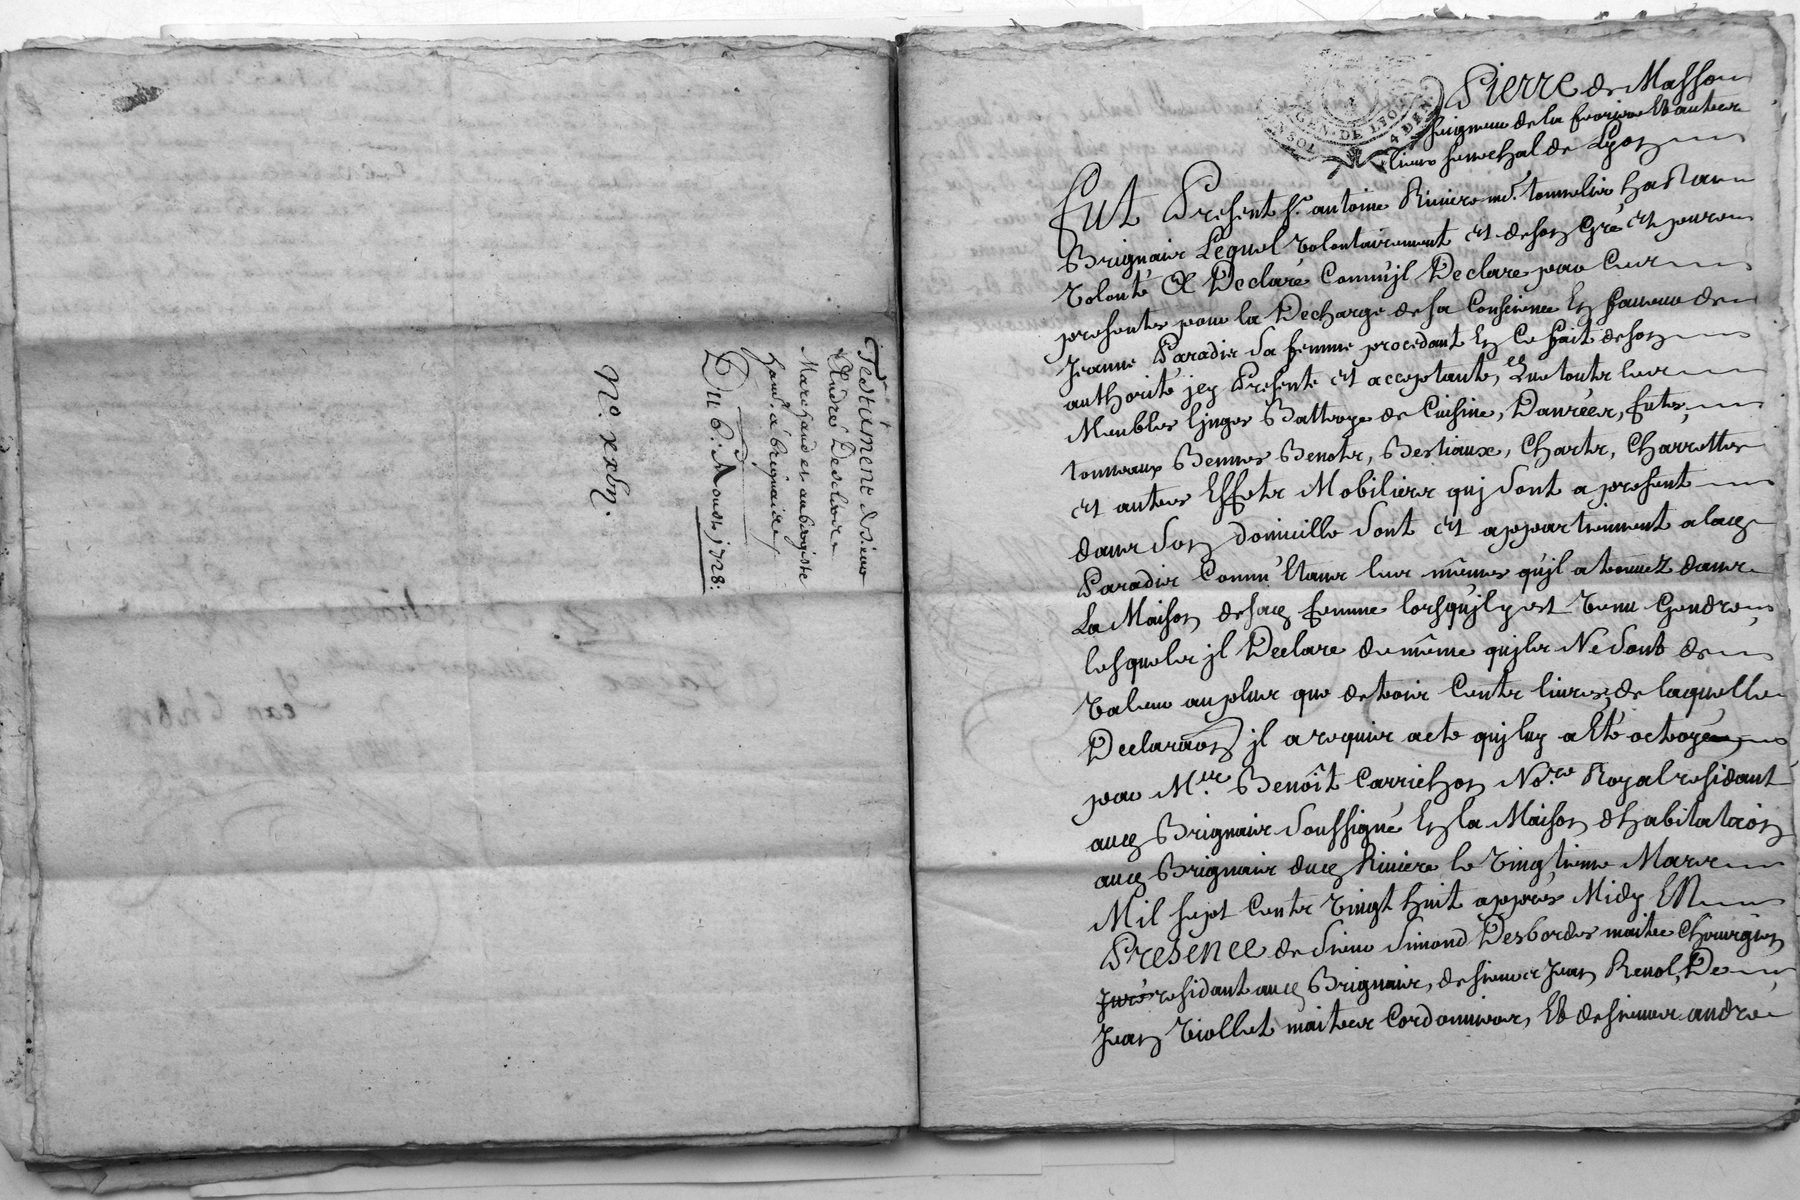 Testament de sieur
André Descloire
Marchand et aubergiste
hant. a brignais
Du 6. Aoust 1728:
N.o xxbij.
GEN. DE LYON
4 DEN
Pierre de Masson
seigneur de la ferriere Et autres
lieux senechal de Lyon
Fut Present sr. antoine Riviere md. tonnelier ha
Brignais Lequel volontairement et de son Gré et pure
volonté A Declaré Comm'jl Declare par Ces
presentes pour la Decharge de sa Consience En faueur de
Jeanne Paradis sa femme procedant En Ce fait de son
authorité jcy Presente et acceptante, Que touts les
Meubles linges Batterye de Cuisine, Danrées, futs,
tonneaux Bennes Benots, Bestiaux, Charts, Charrettes
et autres Effets Mobiliers quj sont a present
dans son domicille sont et appartiennent a lad.
Paradis Comm' Etans les mêmes qujl a trouuez dans
La Maison de sad. femme lorsqujl y est venu Gendre
lesquels jl Declare de même qujls Ne sont de
valeur au plus que de trois Cents liures, de laquelle
Declaraon jl a requis acte quj luy a Eté octroyé
par M.re Benoît Carrichon No.re Royal residant
aud. Brignais soussigné En la Maison d'habitation
aud. Brignais dud. Riviere le vingtieme Mars
Mil sept Cents vingt huit appres Midy EN
Presence de sieur Simond Desbordes maitre Chirurgien
Juré residant aud. Brignais, de sieurs Jean Renol, De
Jean Viollet maitres Cordonniers, Et de sieur andre